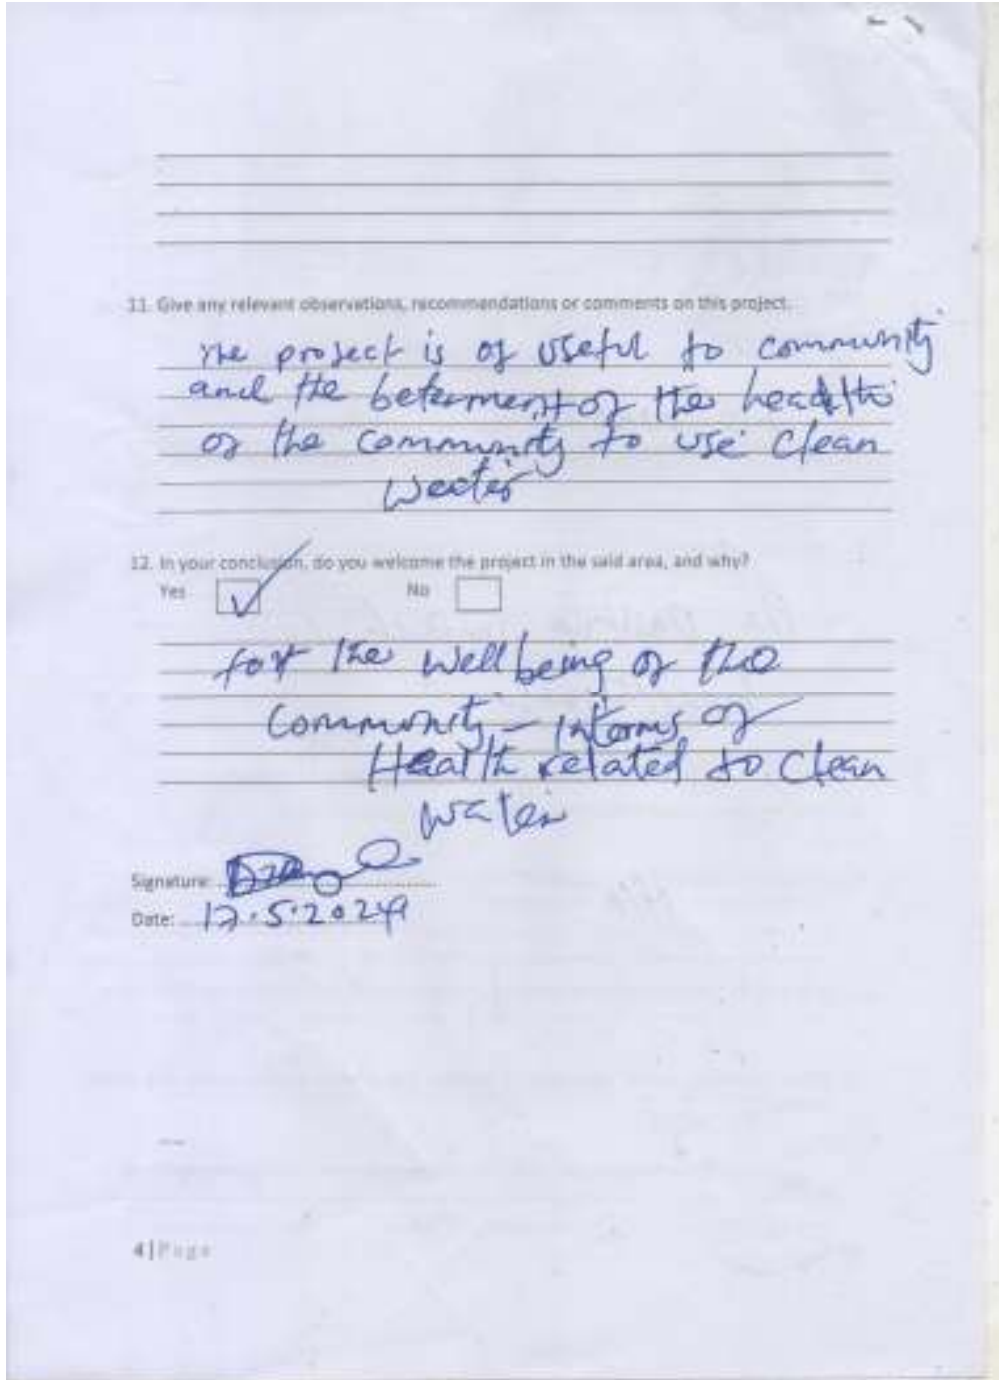 11. Give any relevant observations, recommendations or comments on this project.
The project is of useful to community
and the beterment of the health
of the community to use clean
Water
12. In your conclusion, do you welcome the project in the said area, and why?
Yes No
for the well being of the
Community - interms of
Health related to clean
water
Signature:
Date: 17.5.2024
4|Page